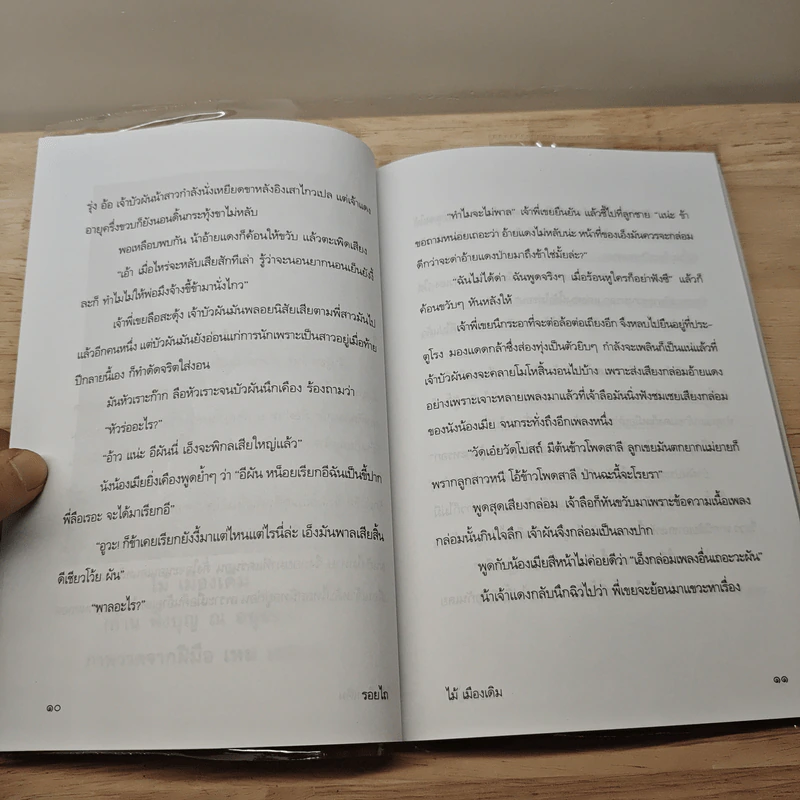 รุ่ง อ้อ เจ้าบัวผันน้าสาวกำลังนั่งเหยียดขาหลังอิงเสาไกวเปล แต่เจ้าแดง
อายุครึ่งขวบก็ยังนอนดิ้นกระทุ้งขาไม่หลับ
พอเหลือบพบกัน น้าอ้ายแดงก็ค้อนให้ขวับ แล้วตะเพิดเสียง
“เอ้า เมื่อไหร่จะหลับเสียสักทีเล่า รู้ว่าจะนอนยากนอนเย็นยังงี้
ละก็ ทำไมไม่ให้พ่อมึงจ้างขี้ข้ามานั่งไกว”
เจ้าพี่เขยลือสะดุ้ง เจ้าบัวผันมันพลอยนิสัยเสียตามพี่สาวมันไป
แล้วอีกคนหนึ่ง แต่บัวผันมันยังอ่อนแก่การนักเพราะเป็นสาวอยู่เมื่อท้าย
ปีกลายนี้เอง ก็ทำดัดจริตใส่งอน
มันหัวเราะก๊าก ลือหัวเราะจนบัวผันนึกเคือง ร้องถามว่า
“หัวร่ออะไร?”
“อ้าว แน่ะ อีผันนี่ เอ็งจะพิกลเสียใหญ่แล้ว”
นังน้องเมียยิ่งเคืองพูดย้ำๆ ว่า “อีผัน หน็อยเรียกอีฉันเป็นขี้ปาก
พี่ลือเรอะ จะได้มาเรียกอี”
“อูวะ! ก็ข้าเคยเรียกยังงี้มาแต่ไหนแต่ไรนี่ล่ะ เอ็งมันพาลเสียสิ้น
ดีเชียวโว้ย ผัน”
“พาลอะไร?”
๑๐
รอยไถ
“ทำไมจะไม่พาล” เจ้าพี่เขยยืนยัน แล้วชี้ไปที่ลูกชาย “แน่ะ ข้า
ขอถามหน่อยเถอะว่า อ้ายแดงไม่หลับน่ะ หน้าที่ของเอ็งมันควรจะกล่อม
ดีกว่าจะด่าอ้ายแดงป่ายมาถึงข้าใช่มั้ยล่ะ?”
“ฉันไม่ได้ด่า ฉันพูดจริงๆ เมื่อร้อนหูใครก็อย่าฟังซี” แล้วก็
ค้อนขวับๆ หันหลังให้
เจ้าพี่เขยนึกระอาที่จะต่อล้อต่อเถียงอีก จึงหลบไปยืนอยู่ที่ประ-
ตูโรง มองแดดกล้าซึ่งส่องทุ่งเป็นตัวยิบๆ กำลังจะเพลินก็เป็นแน่แล้วที่
เจ้าบัวผันคงจะคลายโมโหสิ้นงอนไปบ้าง เพราะส่งเสียงกล่อมอ้ายแดง
อย่างเพราะเจาะหลายเพลงมาแล้วที่เจ้าลือมันนิ่งฟังชมเชยเสียงกล่อม
ของนังน้องเมีย จนกระทั่งถึงอีกเพลงหนึ่ง
“วัดเอ๋ยวัดโบสถ์ มีต้นข้าวโพดสาลี ลูกเขยมันตกยากแม่ยายก็
พรากลูกสาวหนี โอ้ข้าวโพดสาลี ป่านฉะนี้จะโรยรา”
พูดสุดเสียงกล่อม เจ้าลือก็หันขวับมาเพราะข้อความเนื้อเพลง
กล่อมนั้นกินใจลึก เจ้าผันจึงกล่อมเป็นลางปาก
พูดกับน้องเมียสีหน้าไม่ค่อยดีว่า “เอ็งกล่อมเพลงอื่นเถอะวะผัน”
น้าเจ้าแดงกลับนึกฉิวไปว่า พี่เขยจะย้อนมาแขวะหาเรื่อง
ไม้ เมืองเดิม
๑๑